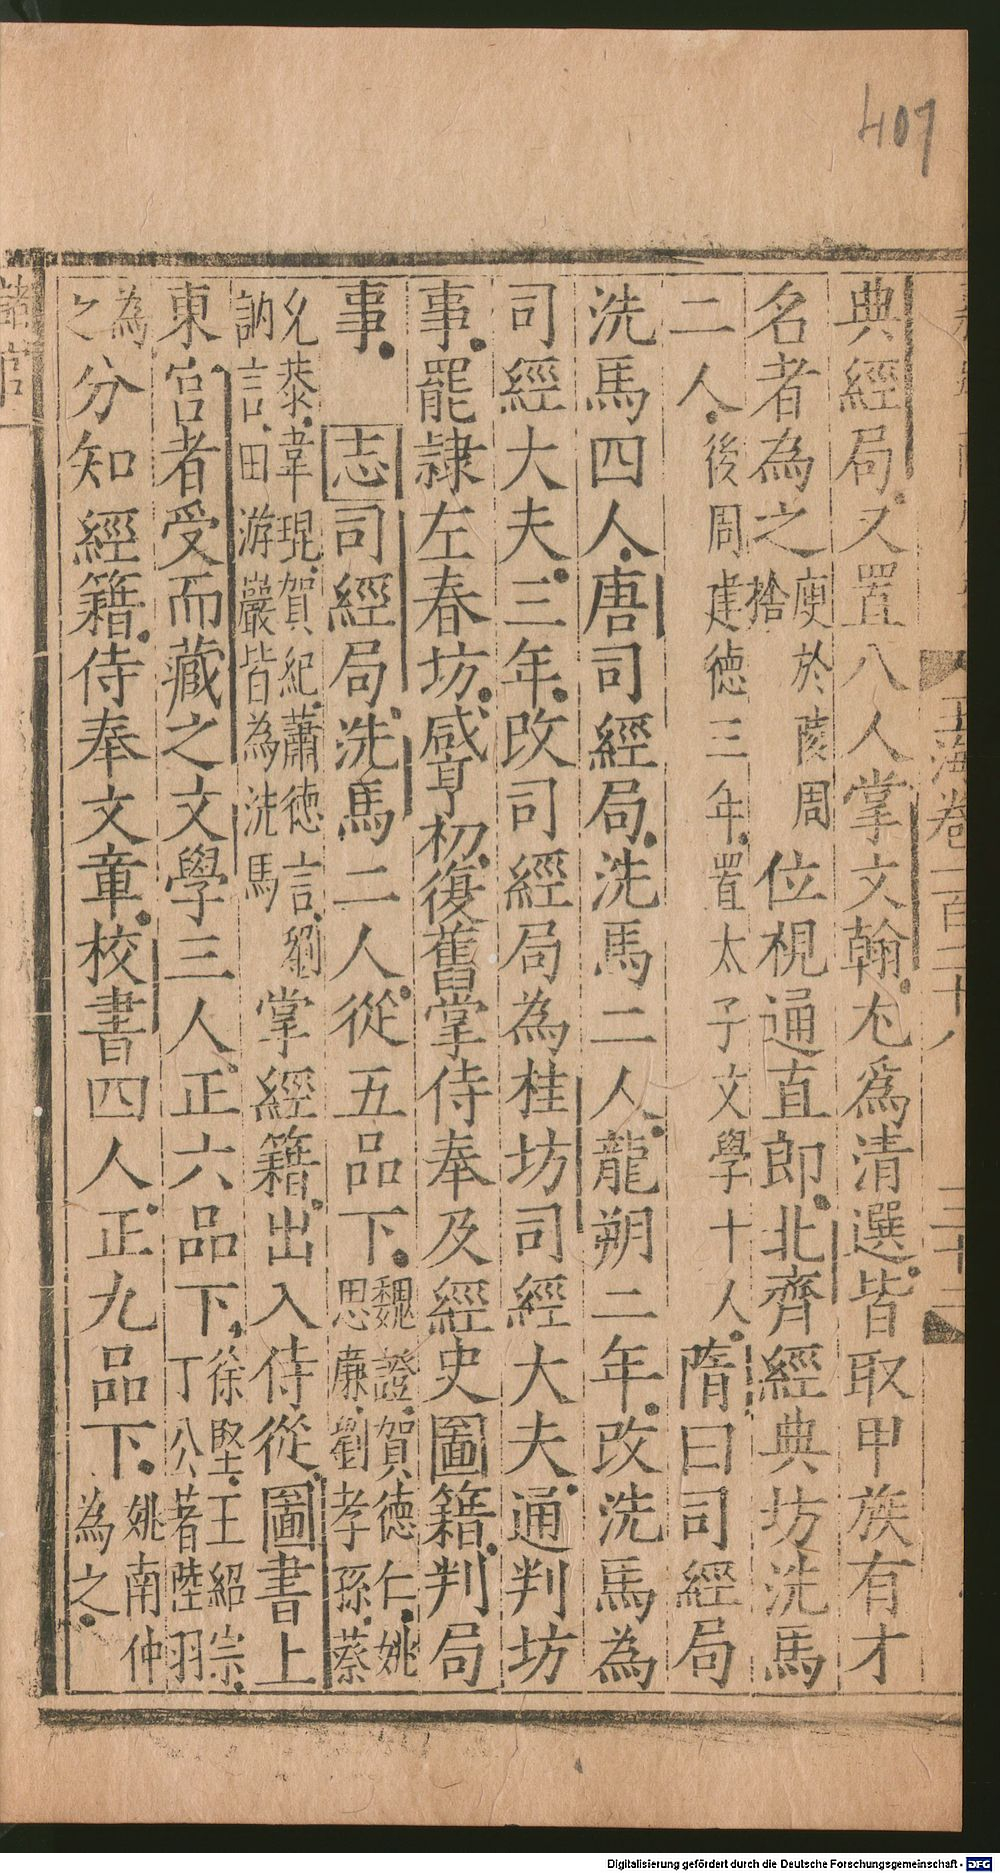 407
玉海卷一百二十八 三十二
典經局又置八人掌文翰尤為清選皆取甲族有才
名者為之庾於陵周捨位視通直郎北齊經典坊洗馬
二人後周建德三年置太子文學十人隋曰司經局
洗馬四人唐司經局洗馬二人龍朔二年改洗馬為
司經大夫三年改司經局為桂坊司經大夫通判坊
事罷隷左春坊咸亨初復舊掌侍奉及經史圖籍判局
事 志司經局洗馬二人從五品下魏證賀德仁姚思廉劉孝孫蔡
允恭韋琨賀紀蕭德言劉訥言田游巖皆為洗馬掌經籍出入侍從圖書上
東宮者受而藏之文學三人正六品下徐堅王紹宗丁公著陸羽
為之分知經籍侍奉文章校書四人正九品下姚南仲為之
儲宮
Digitalisierung gefördert durch die Deutsche Forschungsgemeinschaft - DFG